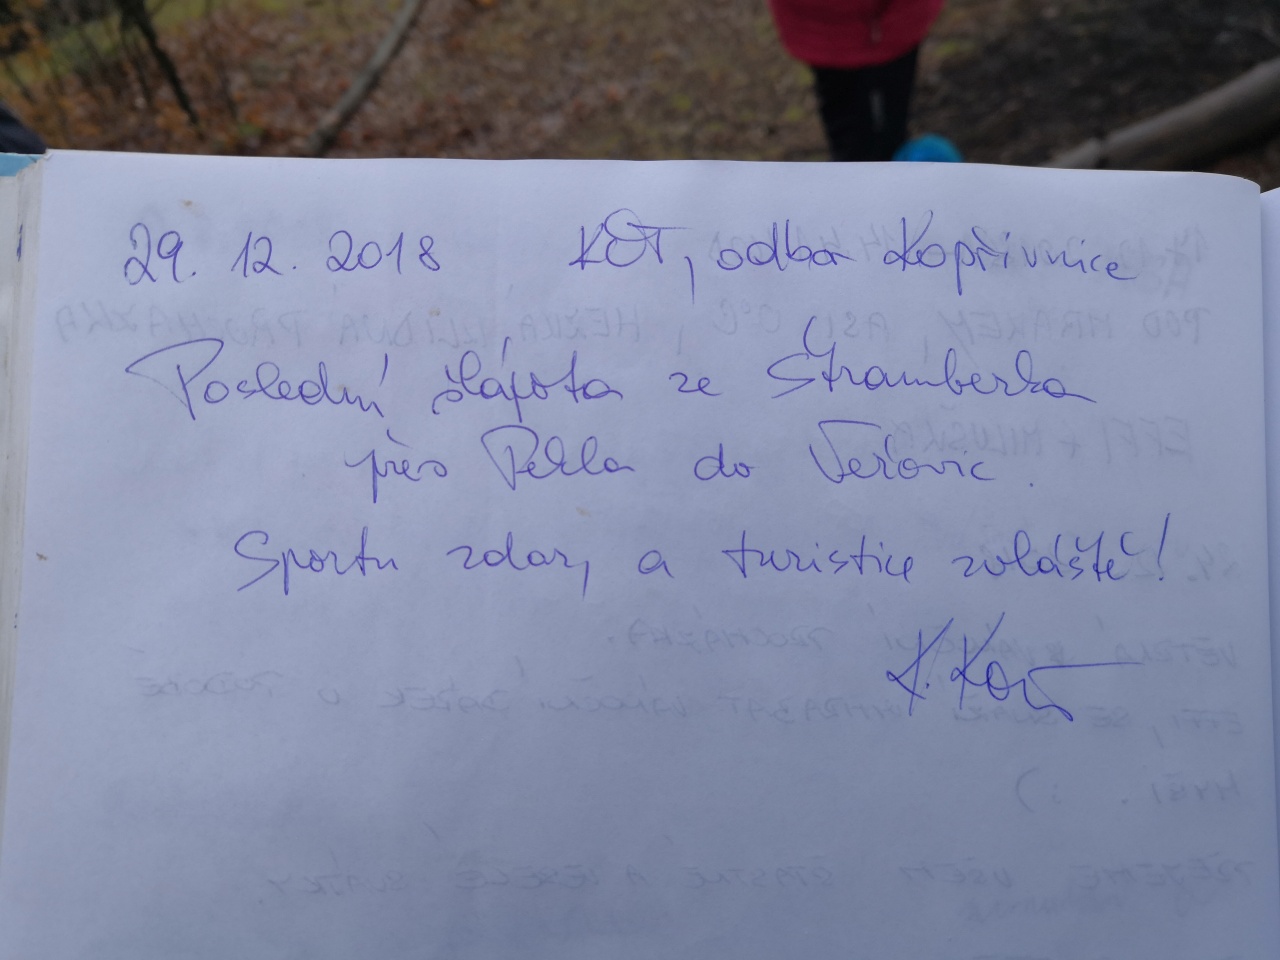 29. 12. 2018 KČT, odbor Kopřivnice
Poslední šlápota ze Štramberka
přes Peklo do Veřovic.
Sportu zdar, a turistice zvláště!